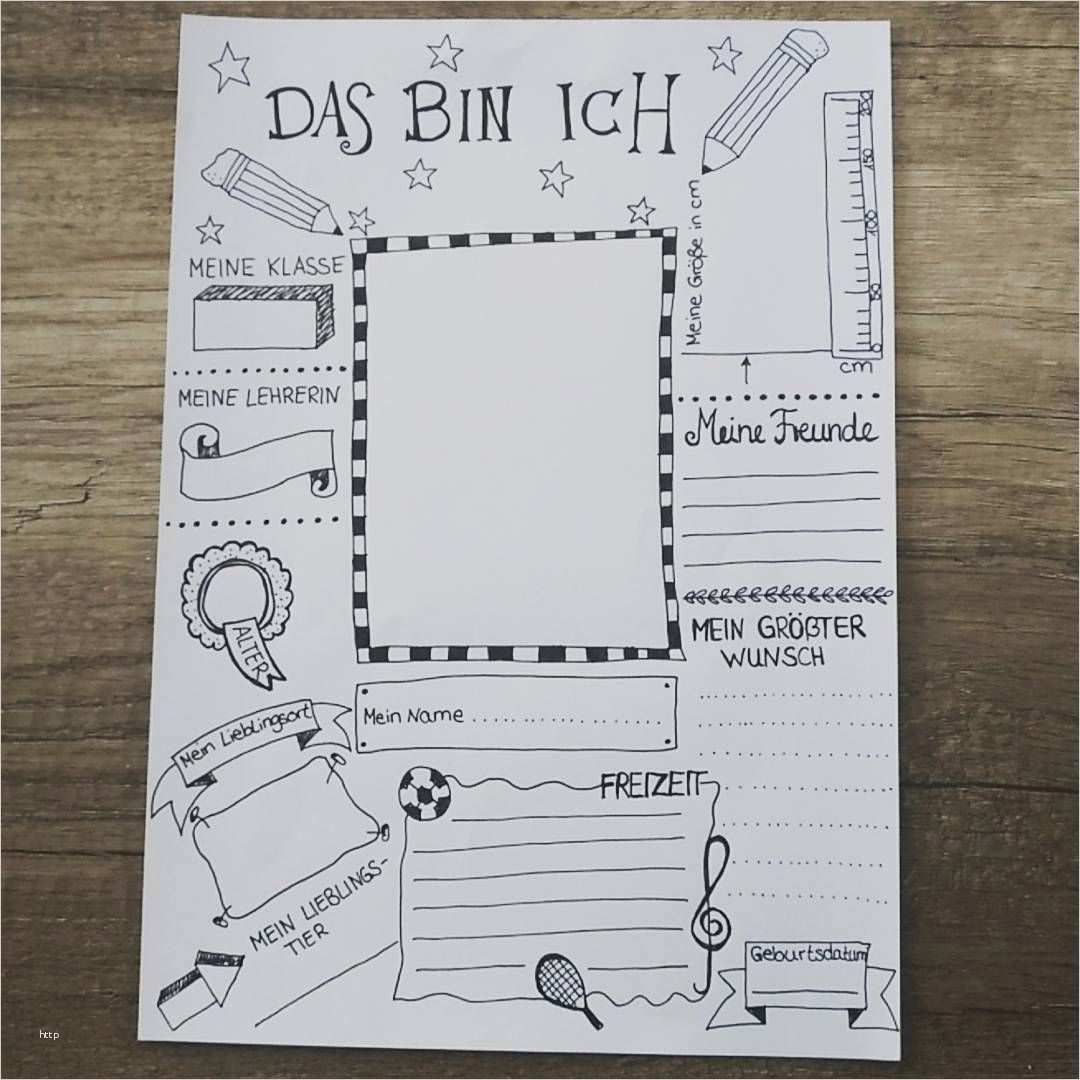 DAS BIN ICH
MEINE KLASSE
MEINE LEHRERIN
ALTER
Mein Lieblingsort
MEIN LIEBLINGS-
TIER
Mein Name
FREIZEIT
Meine Größe in cm
200
150
100
50
0
cm
Meine Freunde
MEIN GRÖßTER
WUNSCH
Geburtsdatum
http